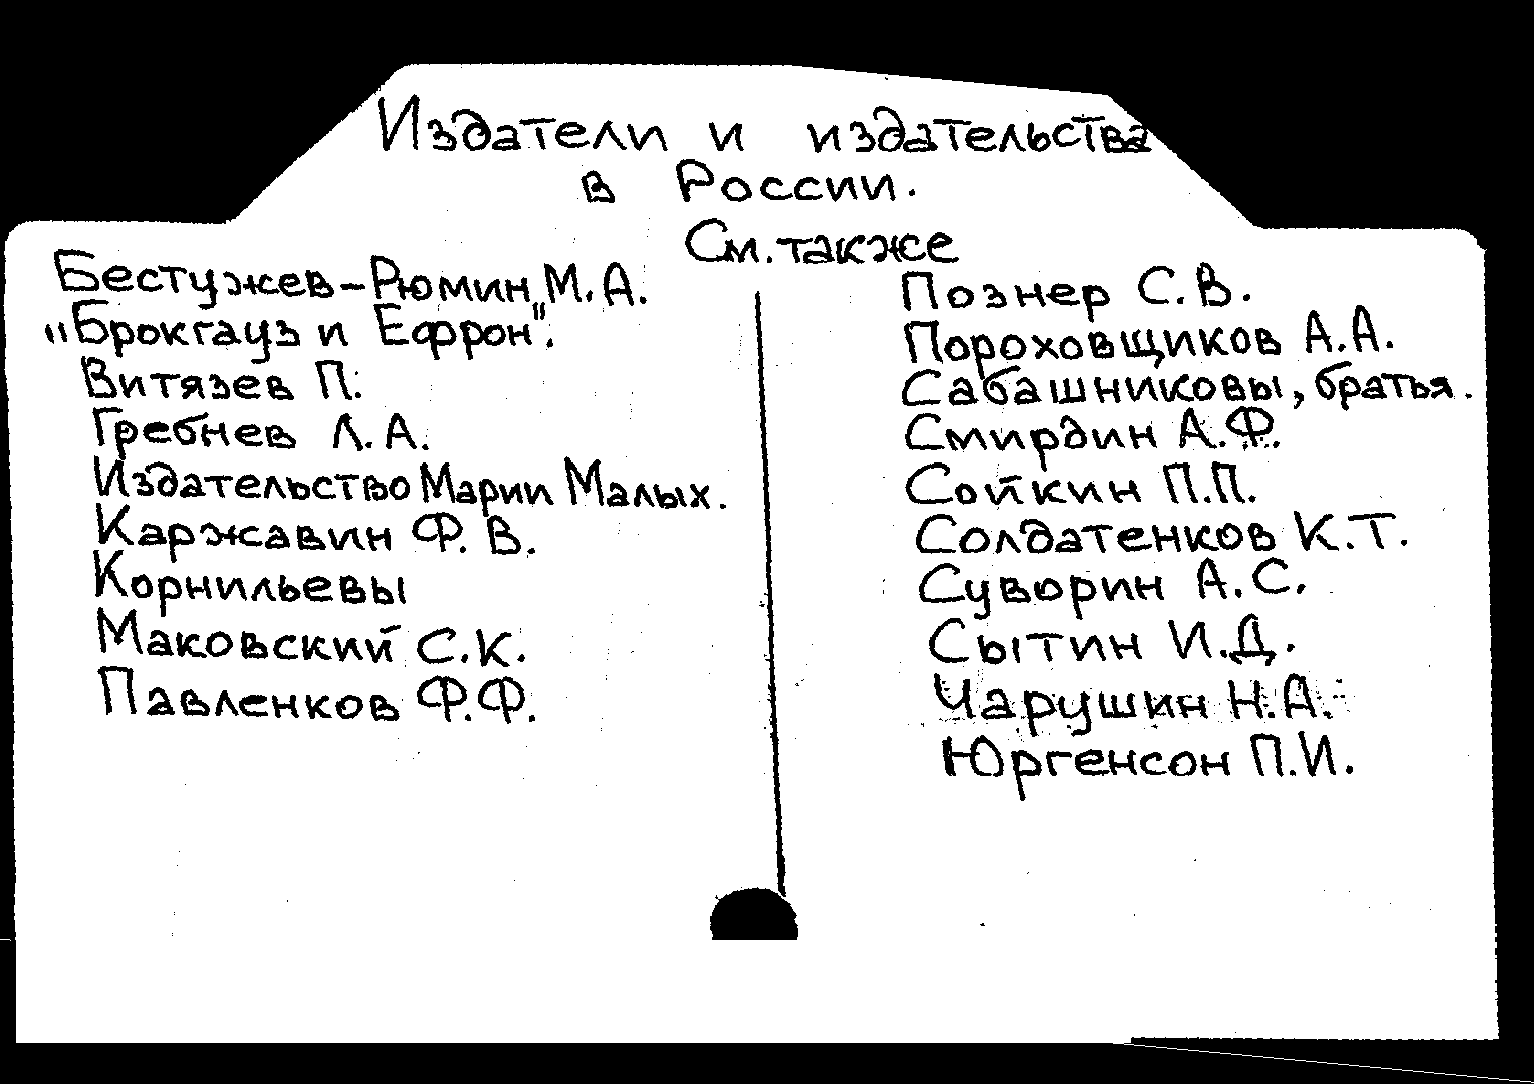 Издатели и издательства
в России.
См. также
Бестужев-Рюмин М.А.
"Брокгауз и Ефрон".
Витязев П.
Гребнев Л.А.
Издательство Марии Малых.
Каржавин Ф.В.
Корнильевы
Маковский С.К.
Павленков Ф.Ф.
Познер С.В.
Пороховщиков А.А.
Сабашниковы, братья.
Смирдин А.Ф.
Сойкин П.П.
Солдатенков К.Т.
Суворин А.С.
Сытин И.Д.
Чарушин Н.А.
Юргенсон П.И.